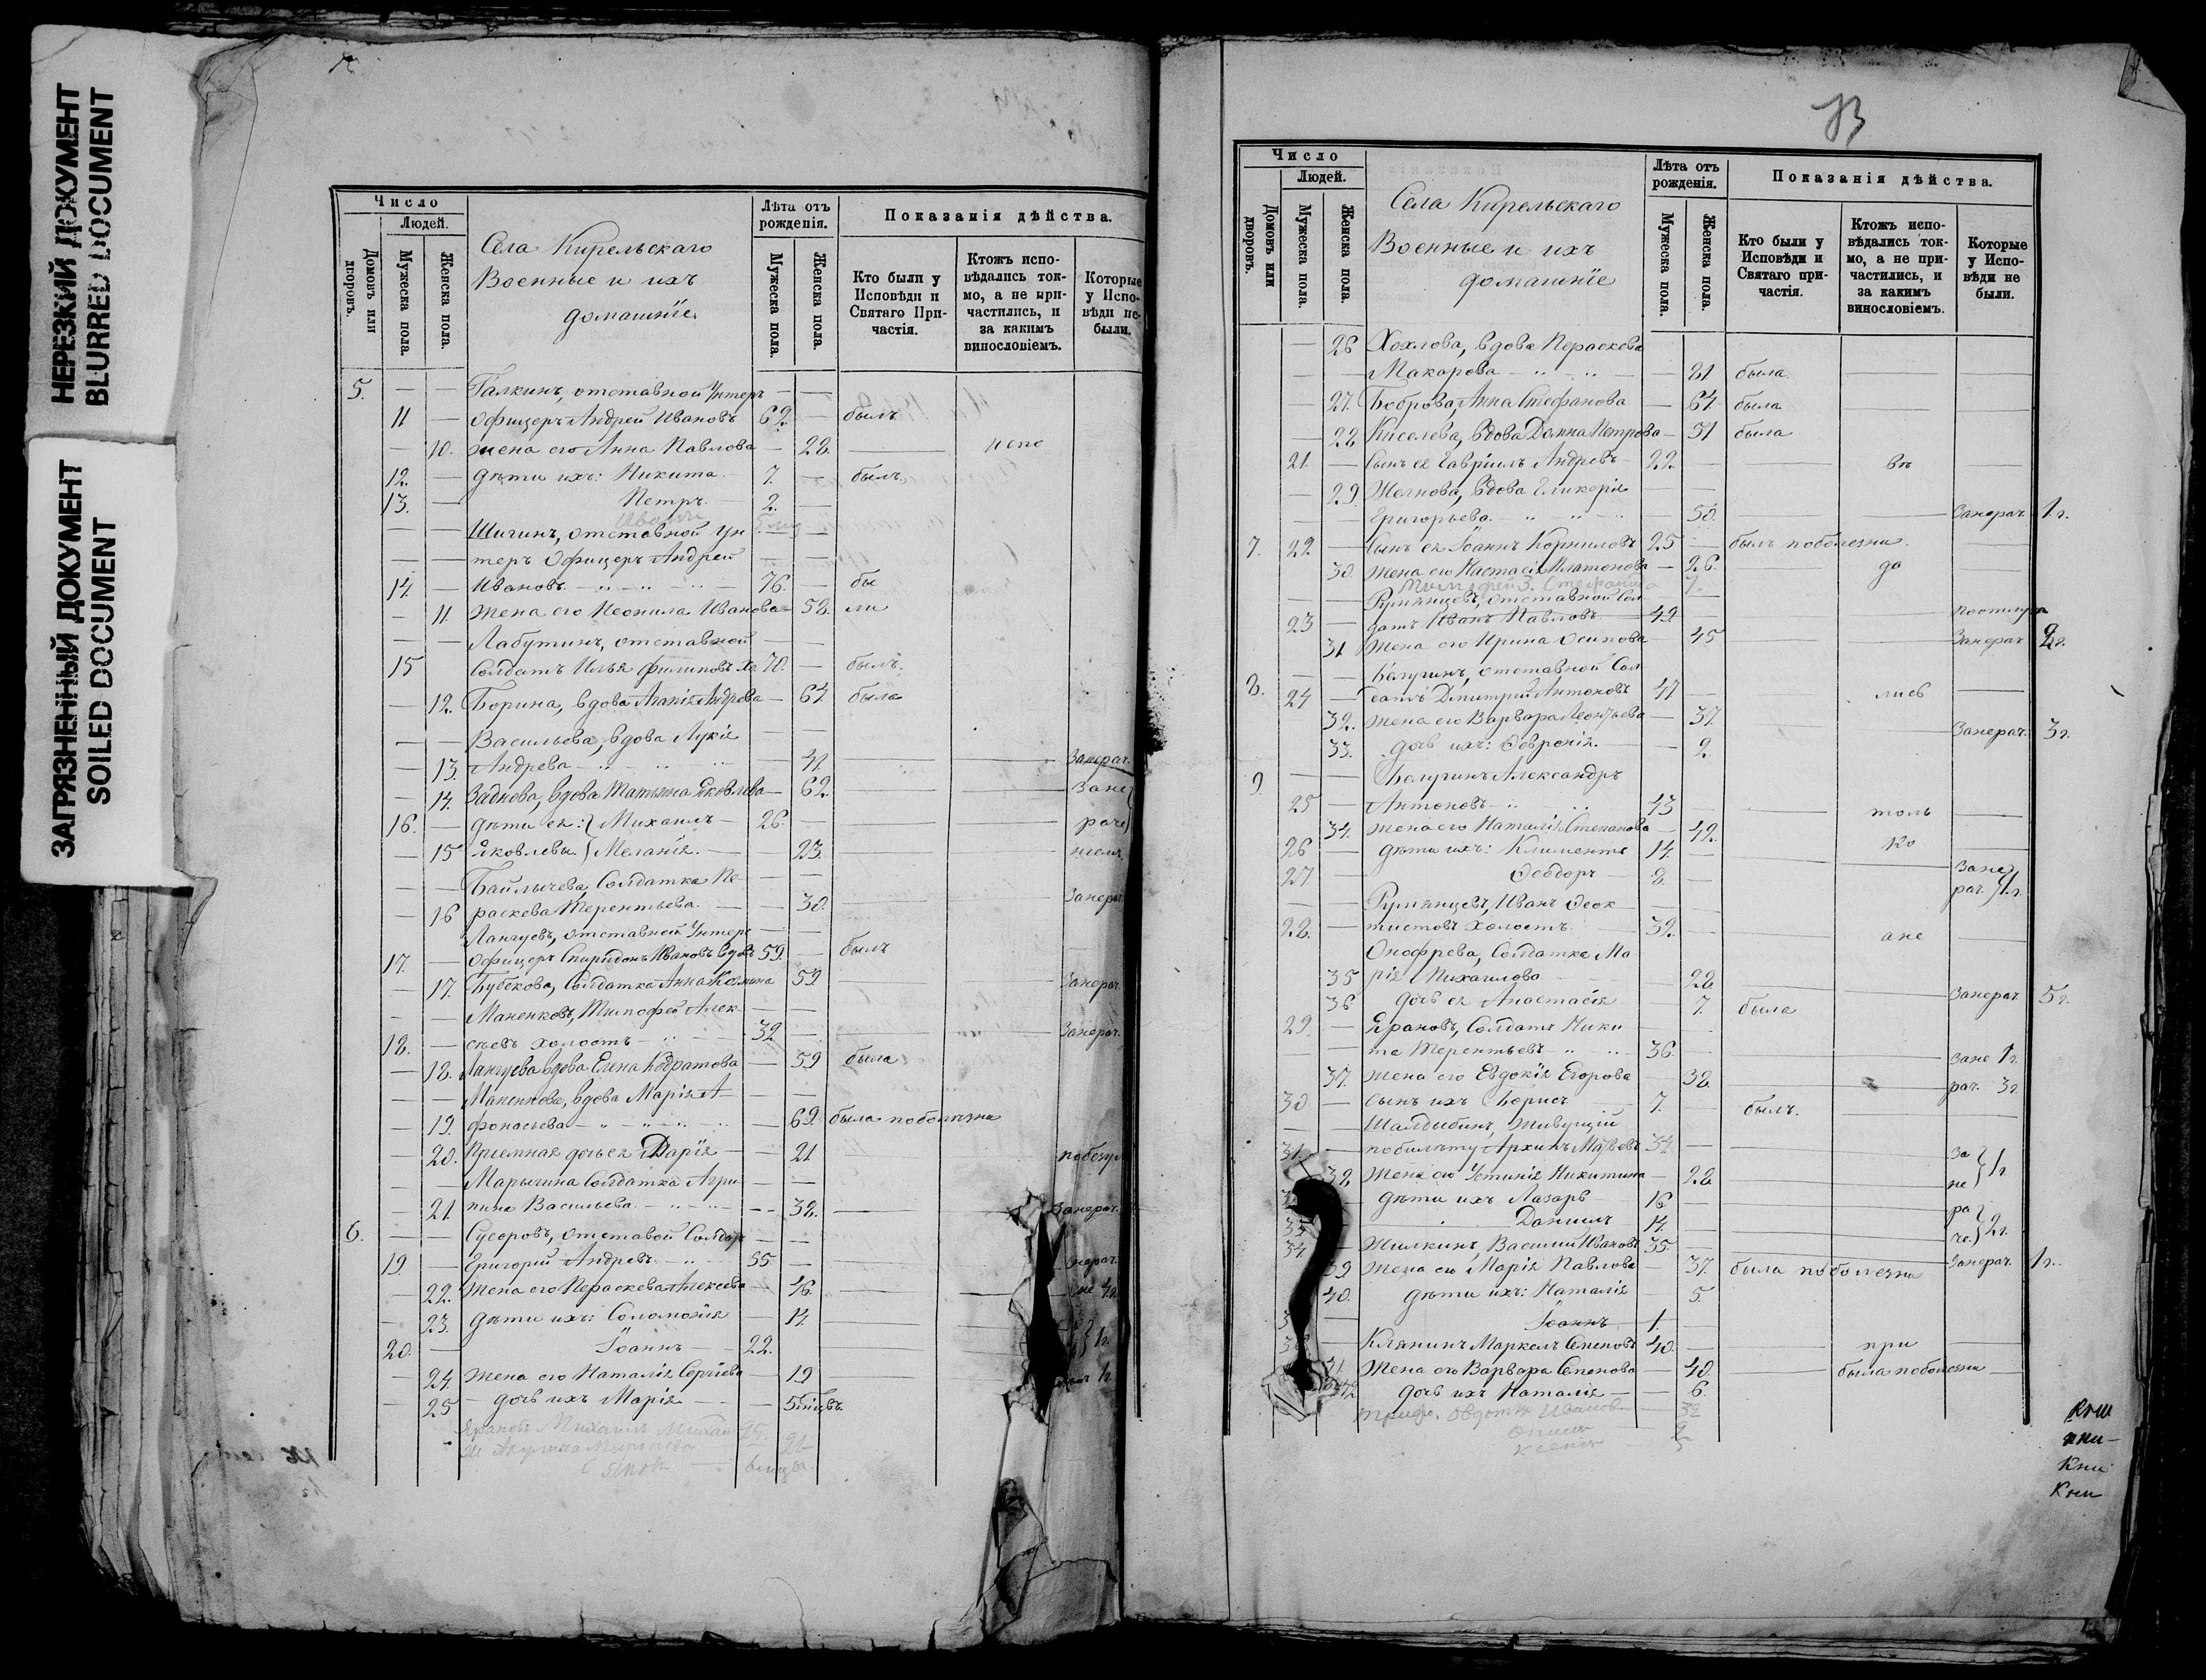 НЕРЕЗКИЙ ДОКУМЕНТ
BLURRED DOCUMENT
ЗАГРЯЗНЕННЫЙ ДОКУМЕНТ
SOILED DOCUMENT
Число
Людей.
Домовъ или дворовъ.
Мужеска пола.
Женска пола.
Села Кирельскаго
Военные и ихъ
домашніе
Лѣта отъ рожденія.
Мужеска пола.
Женска пола.
Показанія дѣйства.
Кто были у Исповѣди и Святаго Причастія.
Ктожъ исповѣдались токмо, а не причастились, и за какимъ винословіемъ.
Которые у Исповѣди не были.
5. — — Галкинъ, отставной Унтеръ — —
11 — офицеръ Андрей Ивановъ 62. — былъ
— 10. жена его Анна Павлова — 28. — испо
12. — дѣти ихъ: Никита 7. — былъ
13. — Петръ. — 2. —
— — Шигинъ, отставной Ун
— — теръ офицеръ Андрей — —
14. — Ивановъ 76. — бы
— 11. жена его Неонила Иванова 58. ли
— — Лабутинъ, отставной —
15 солдатъ Илья Филиповъ 70. — былъ.
— 12. Борина, вдова Андрева — 64 была
— — Васильева, вдова Лукія — —
— 13. Андрева — 42 — — Занерач.
— 14. Заднова, вдова Татьяна Яковлева — 62. — — Зане
16. — дѣти ея: Михаилъ — 26. — — раче
— 15 Яковлевы Меланія. — 23. — — ніемъ
— — Байлычева, Солдатка Пе — —
— 16 раскева Терентьева. — 30. — — Занерач.
Лангуевъ, отставной Унтеръ — —
17. — офицеръ Спиридонъ Ивановъ вдовъ 59. — былъ
— 17. Бубекова, Солдатка Анна 59 Занерач.
— — Маненковъ, Тимофей Алек — —
18. — сѣевъ холостъ 32 — — Занерач.
— 18. Лангуева вдова Елена Кодратова — 59 была
— — Маненкова, вдова Марія А — —
— 19. фонасьева — 69. была поболѣзни
— 20. Пріемная дочь ея Дарія — 21
— — Марычина Солдатка Агри — —
— 21. пина Васильева. — 38. — Занерач.
6. — — Сусоровъ, отставой Солдатъ — —
19. — Григорій Андревъ. 55. —
— 22. жена его Параскева Алексева — 46. —
— 23. дѣти ихъ: Соломонія — 14. —
20. — Іоаннъ — 22.
— 24. жена его Наталія Сергіева — 19
— 25 дочь ихъ Марія — —
73
Число
Людей.
Домовъ или дворовъ.
Мужеска пола.
Женска пола.
Села Кирельскаго
Военные и ихъ
домашніе
Лѣта отъ рожденія.
Мужеска пола.
Женска пола.
Показанія дѣйства.
Кто были у Исповѣди и Святаго причастія.
Ктожъ исповѣдались токмо, а не причастились, и за какимъ винословіемъ.
Которые у Исповѣди не были.
— 26 Хохлова, вдова Пераскева
— — Макарова — 81 была
— 27. Боброва, Анна Стефанова — 64 была
— 28. Киселева, вдова Домна Петрова — 51 была
21. — Сынъ ея Гавріилъ Андревъ 22. — — вѣ
— 29. Желнова, вдова Гликерія — —
— — Григорьева. — 50. — — Занерач. 1 г.
7. 22. — Сынъ ея Іоаннъ Корниловъ 25 — былъ поболезни
30. жена его Настасія Платонова — 26. — да
— — Румянцевъ, отставной Сол — —
23 — датъ Иванъ Павловъ 49
31 жена его Ирина Осипова — 45 — — Занерач. 2 г.
— — Балугинъ, отставной Сол
8. 24 — датъ Дмитрій Антоновъ 47 — — лись
32. жена его Варвара Леонтьева — 37. — — Занерач. 3 г.
33. дочь ихъ: Февронія. — 2.
9. — — Балугинъ Александръ
25 — Антоновъ 43 — — толь
34. жена его Наталія Степанова — 42. — ко
26 — дѣти ихъ: Климентъ 14. —
27 — Ѳеодоръ 8. — — Зане рач. 1 г.
— — Румянцевъ, Иванъ Ѳеок — —
28. — тистовъ холостъ 32. — — ане
Онофрева, Солдатка Ма
35 рія Михаилова 28 — — Занерач. 5 г.
36 дочь ея Анастасія 7. была
29. — Ярановъ, Солдатъ Ники
та Терентьевъ 36. — — Зане 1 г.
37. жена его Евдокія Егорова — 38. — рач. 3 г.
30 — сынъ ихъ Борисъ 7. — былъ. —
— — Шалдыбинъ, живущій
31. — побилету Архипъ 34 —
38. жена его Устинія Никитина — 28 — За не 1 г.
дѣти ихъ Лазарь — 16. — ра
33 — Даніилъ 14. — че. 2 г.
34 — Жилкинъ, Василій Ивановъ 35. —
39 жена его Марія Павлова — 37. была поболезни Занерач. 1 г.
40. дѣти ихъ: Наталія 5.
— Іоаннъ 1. —
Клянинъ Маркелъ Семеновъ 40. — при
41 жена его Варвара Семенова — 40. — была поболезни
42 дочь ихъ Наталія — 6.